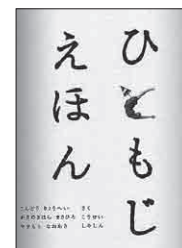 ひともじ
えほん
こんどう りょうへい さく
かきのきはら まさひろ こうせい
やまもと なおあき しゃしん